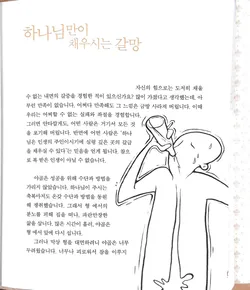 하나님만이
채우시는 갈망
자신의 힘으로는 도저히 채울
수 없는 내면의 갈증을 경험한 적이 있으신가요? 많이 가졌다고 생각했는데, 아
무런 만족이 없습니다. 어쩌다 만족해도 그 느낌은 금방 사라져 버립니다. 이때
우리는 어찌할 수 없는 실패와 좌절을 경험합니다.
그리면 안타깝게도, 어떤 사람은 거기서 모든 것
을 포기해 버립니다. 반면에 어떤 사람은 '하나
님은 인생의 주인이시기에 실망 깊은 곳의 갈급
을 채우실 수 있다'는 믿음을 얻게 됩니다. 참으
로 복 받은 인생이 아닐 수 없습니다.
야곱은 성공을 위해 수단과 방법을
가리지 않았습니다. 하나님이 주시는
축복마저도 온갖 수단과 방법을 동원
해 쟁취했습니다. 그래서 형 에서의
분노를 피해 집을 떠나, 파란만장한
삶을 삽니다. 많은 시간이 흘러, 야곱은
형 에서 앞에 다시 섭니다.
그러나 막상 형을 대면하려니 야곱은 너무
두려웠습니다. 너무나 괴로워서 잠을 이루지